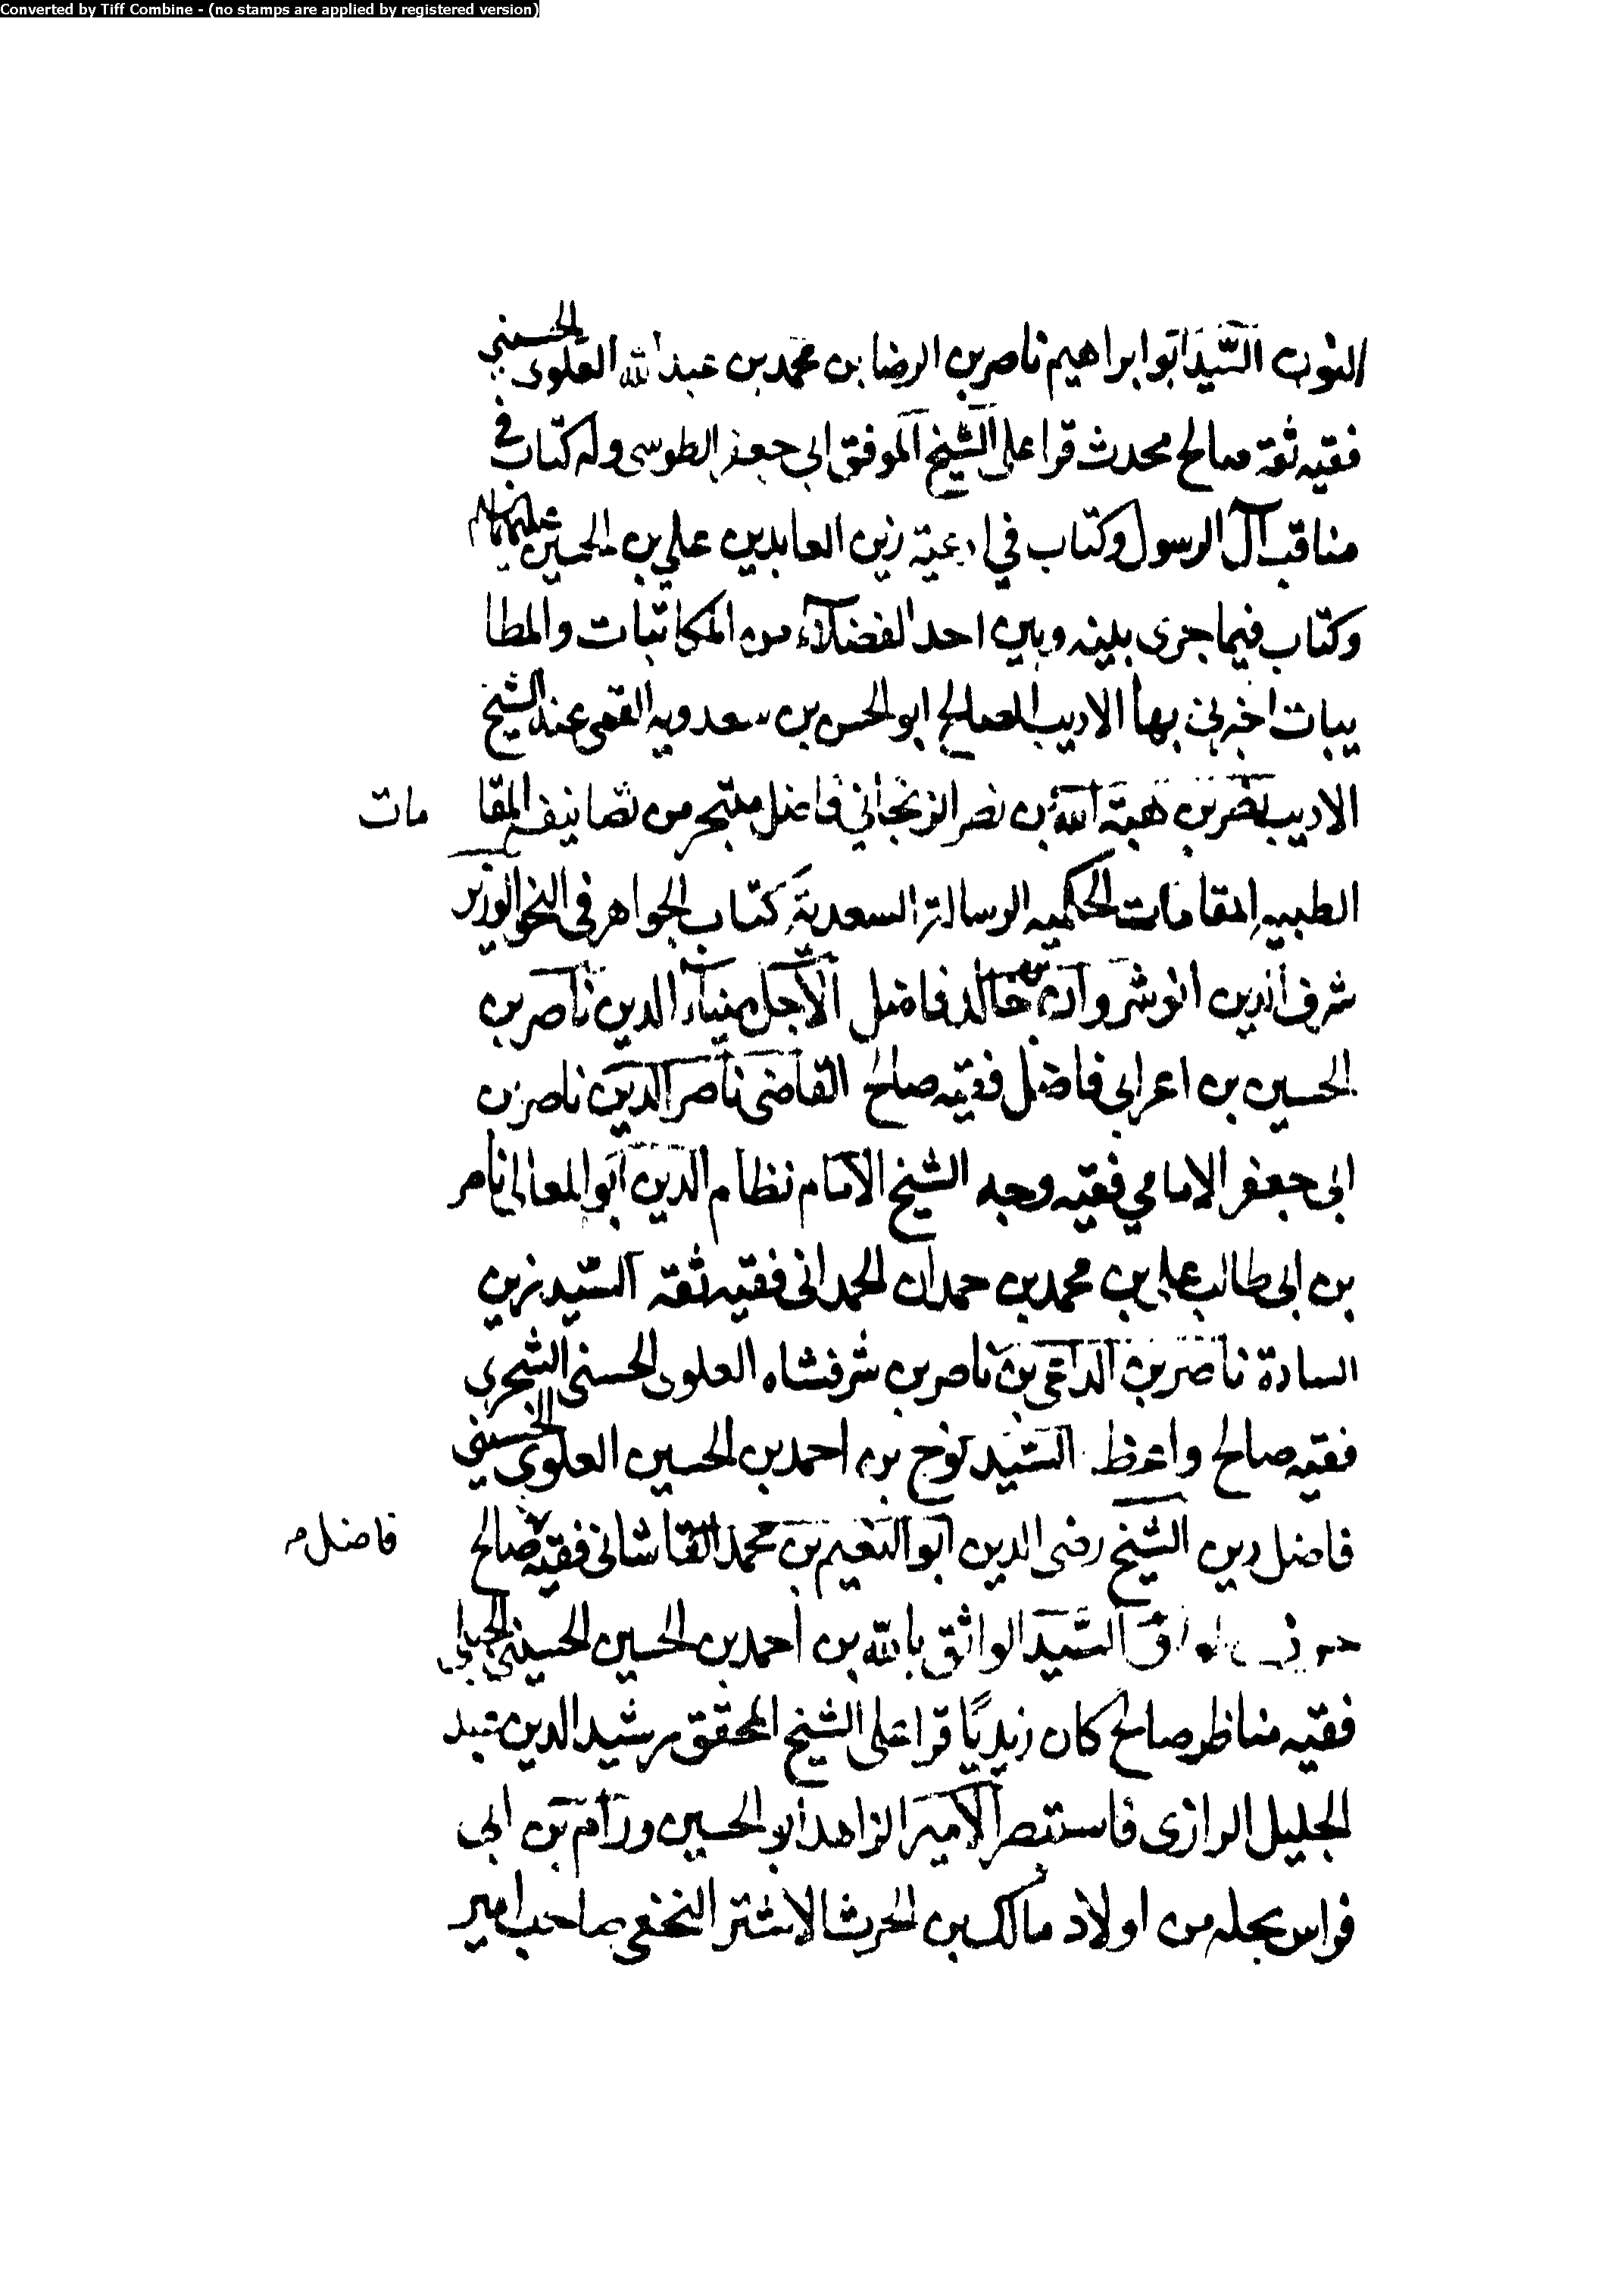 Converted by Tiff Combine - (no stamps are applied by registered version)
النون السيد ابو ابراهيم ناصر بن الرضا بن محمد بن عبد الله العلوى الحسينى
فقيه ثقة صالح محدث قرا على الشيخ الموفق ابى جعفر الطوسى وله كتاب فى
مناقب آل الرسول وكتاب في ادعية زين العابدين علي بن الحسين عليهما السلم
وكتاب فيما جرى بينه وبين احد الفضلاء من المكاتبات والمطا
يبات اخبرنى بها الاديب الصالح ابو الحسن بن سعدويه القمى عنه الشيخ
الاديب نصر بن هبة الله بن نصر الزنجاني فاضل متبحر من تصانيفه المقا مات
الطبيه المقامات الحكميه الرسالة السعدية كتاب الجواهر فى النحو الوزير
شرف الدين انوشروان بن خالد فاضل الأجل ضياء الدين ناصر بن
الحسين بن اعرابى فاضل فقيه صالح القاضى ناصر الدين ناصر بن
ابى جعفر الامامي فقيه وجه الشيخ الامام نظام الدين ابو المعالى ناصر
بن ابى طالب على بن محمد بن حمدان الحمدانى فقيه ثقه السيد زين
السادة ناصر بن الداعى بن ناصر بن شرفشاه العلوى الحسنى الشجرى
فقيه صالح واعظ السيد نوح بن احمد بن الحسين العلوى الحسينى
فاضل دين الشيخ رضى الدين ابو النعيم بن محمد القاشانى فقيه صالح فاضل
السيد الواثق بالله بن احمد بن الحسين الحسينى الجيلى
فقيه مناظر صالح كان زيديًا قرا على الشيخ المحقق رشيد الدين عبد
الجليل الرازى فاستبصر الامير الزاهد ابو الحسين ورام بن ابى
فراس بحله من اولاد مالك بن الحرث الاشتر النخعى صاحب امير